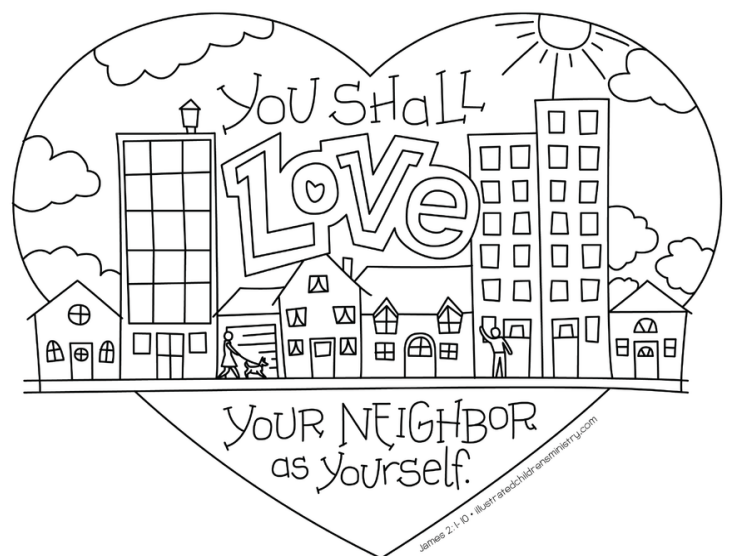 YOU SHaLL
LoVe
YOUR NEIGHBOR
as yourself.
James 2:1-10 • illustratedchildrensministry.com